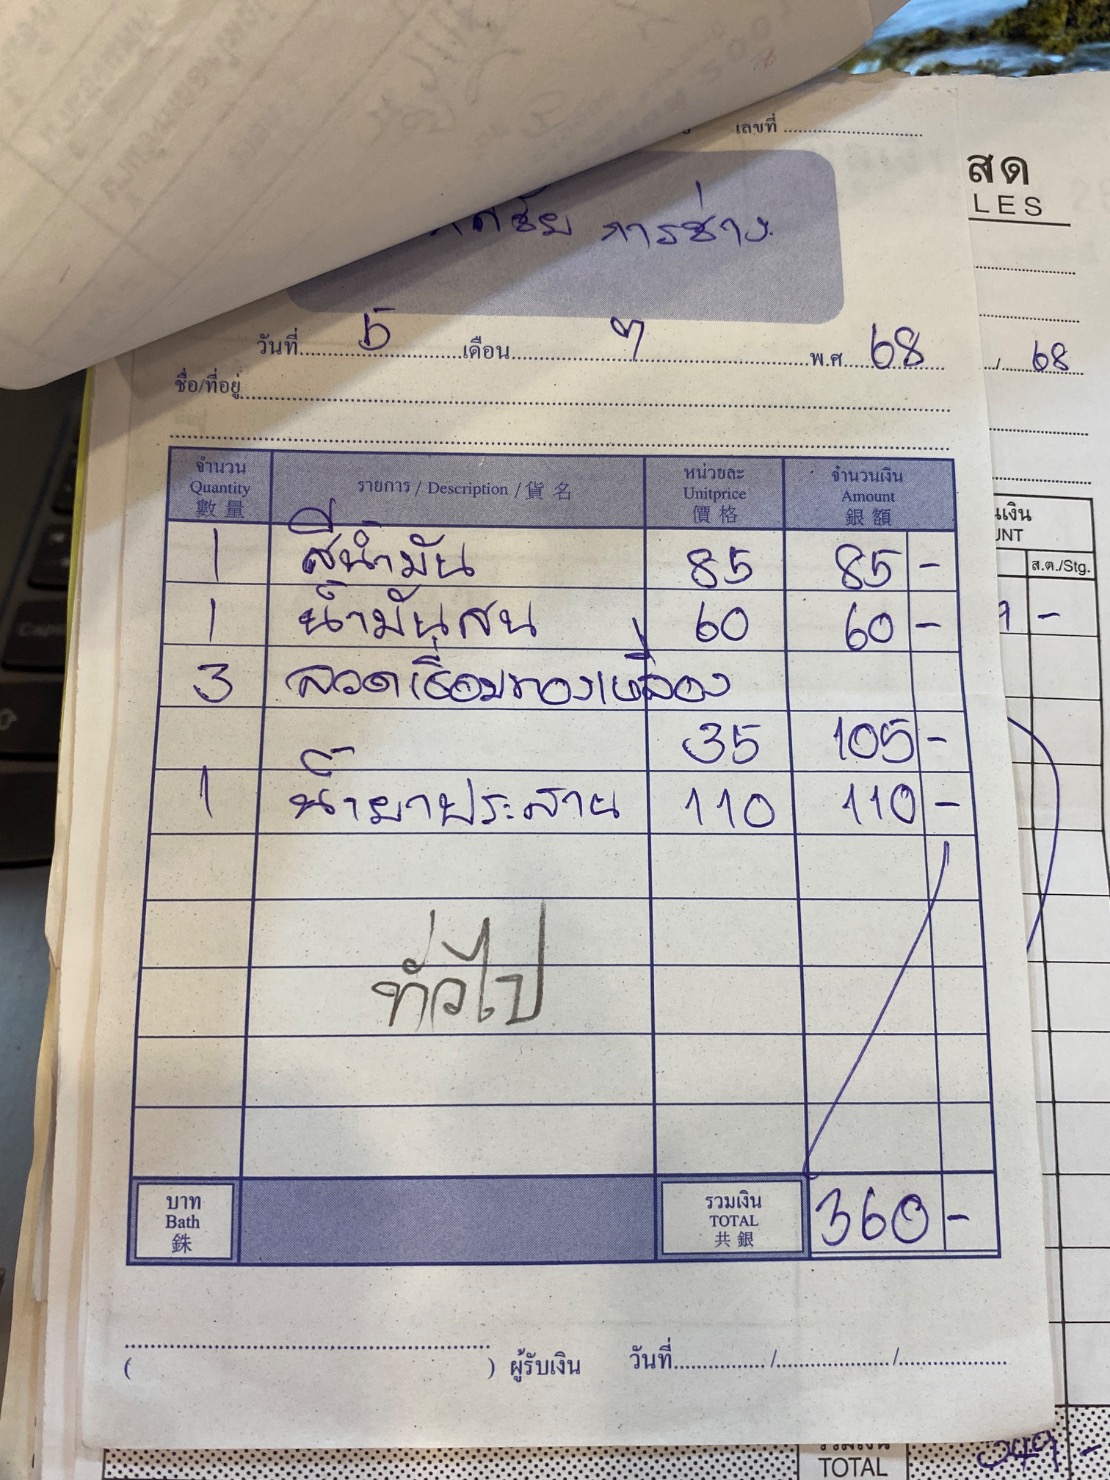 เลขที่
การช่าง
สด
LES
วันที่ 5 เดือน 7 พ.ศ. 68
/ 68
ชื่อ/ที่อยู่
จำนวน รายการ / Description / 貨名 หน่วยละ จำนวนเงิน
Quantity Unitprice Amount
數量 價格 銀額
นเงิน
UNT
ส.ต./Stg.
1 สีน้ำมัน 85 85 -
1 น้ำมันสน 60 60 -
3 ลวดเชื่อมทองเหลือง
35 105 -
1 น้ำยาประสาน 110 110 -
ทั่วไป
บาท รวมเงิน 360 -
Bath TOTAL
銖 共銀
( ) ผู้รับเงิน วันที่ / /
รวมเงิน
TOTAL